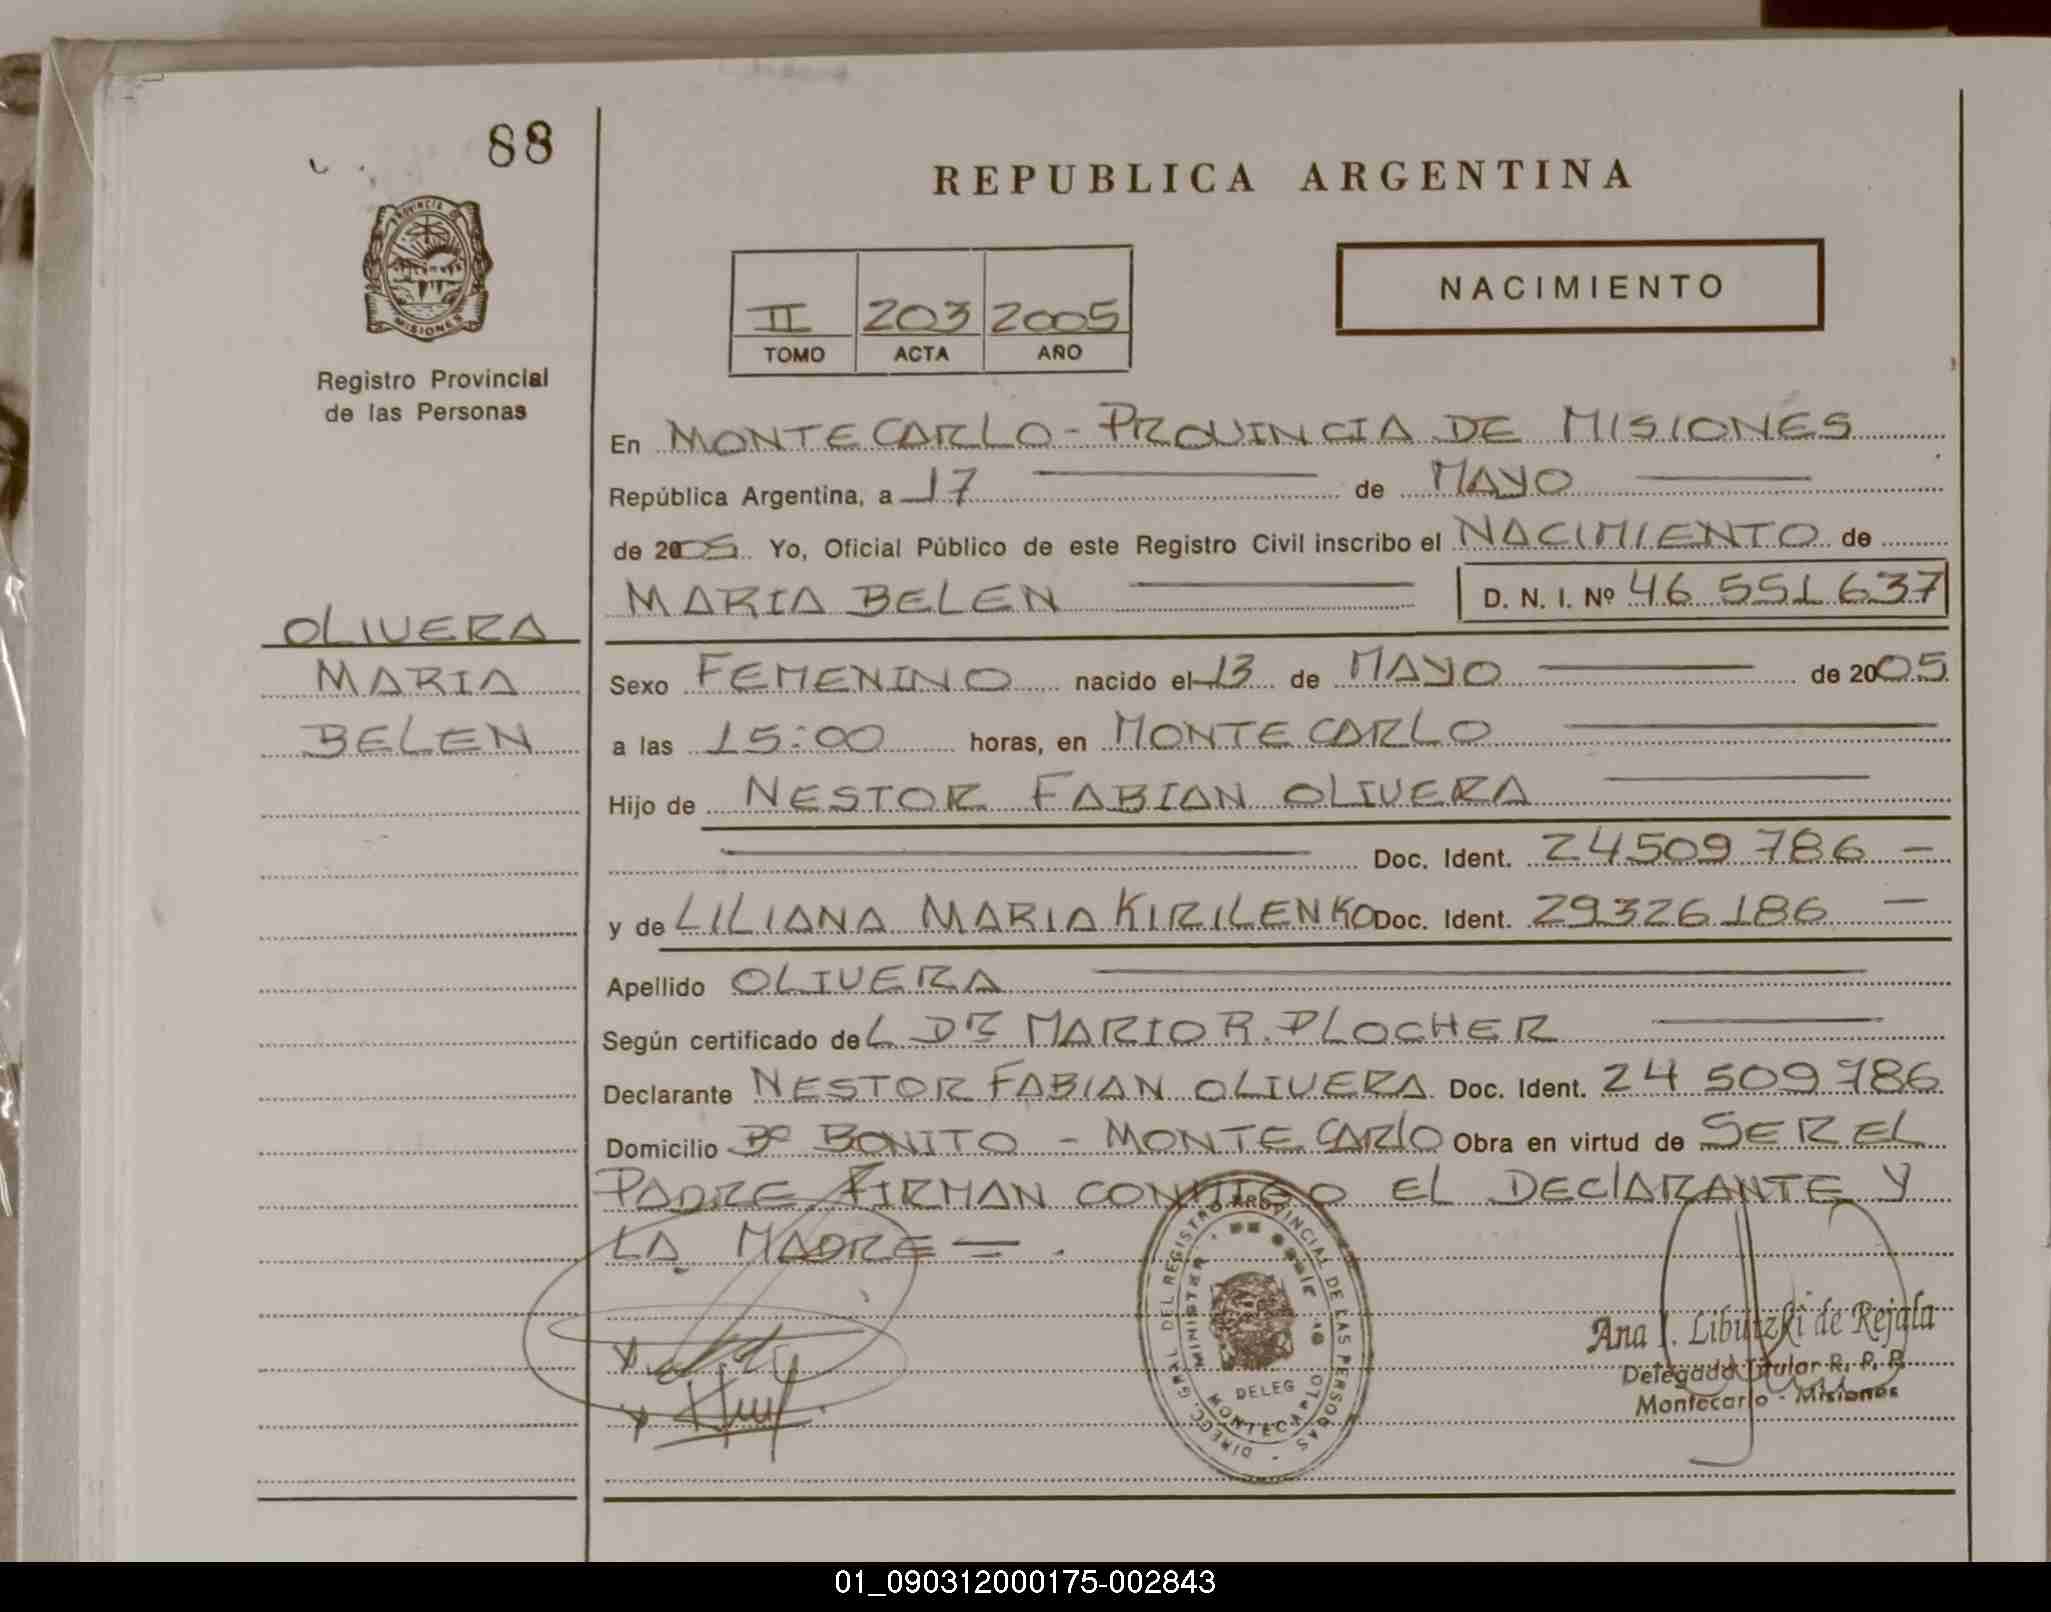 88
PROVINCIA DE
MISIONES
Registro Provincial
de las Personas
OLIVERA
MARIA
BELEN
REPUBLICA ARGENTINA
II 203 2005
TOMO ACTA AÑO
NACIMIENTO
En MONTECARLO - PROVINCIA DE MISIONES
República Argentina, a 17 de MAYO
de 2005 Yo, Oficial Público de este Registro Civil inscribo el NACIMIENTO de
MARIA BELEN D. N. I. Nº 46 551 637
Sexo FEMENINO nacido el 13 de MAYO de 2005
a las 15:00 horas, en MONTECARLO
Hijo de NESTOR FABIAN OLIVERA
Doc. Ident. 24509 786 -
y de LILIANA MARIA KIRILENKO Doc. Ident. 29326186 -
Apellido OLIVERA
Según certificado deL DR MARIO R. PLOCHER
Declarante NESTOR FABIAN OLIVERA Doc. Ident. 24 509 786
Domicilio Bº BONITO - MONTECARLO Obra en virtud de SER EL
PADRE FIRMAN CONMIGO EL DECLARANTE Y
LA MADRE = .
DIRECC. GRAL. DEL REGISTRO PROVINCIAL DE LAS PERSONAS
DELEG
MONTECARLO
Ana I. Libutzki de Rejala
Delegada Titular R. P. P.
Montecarlo - Misiones
01_090312000175-002843